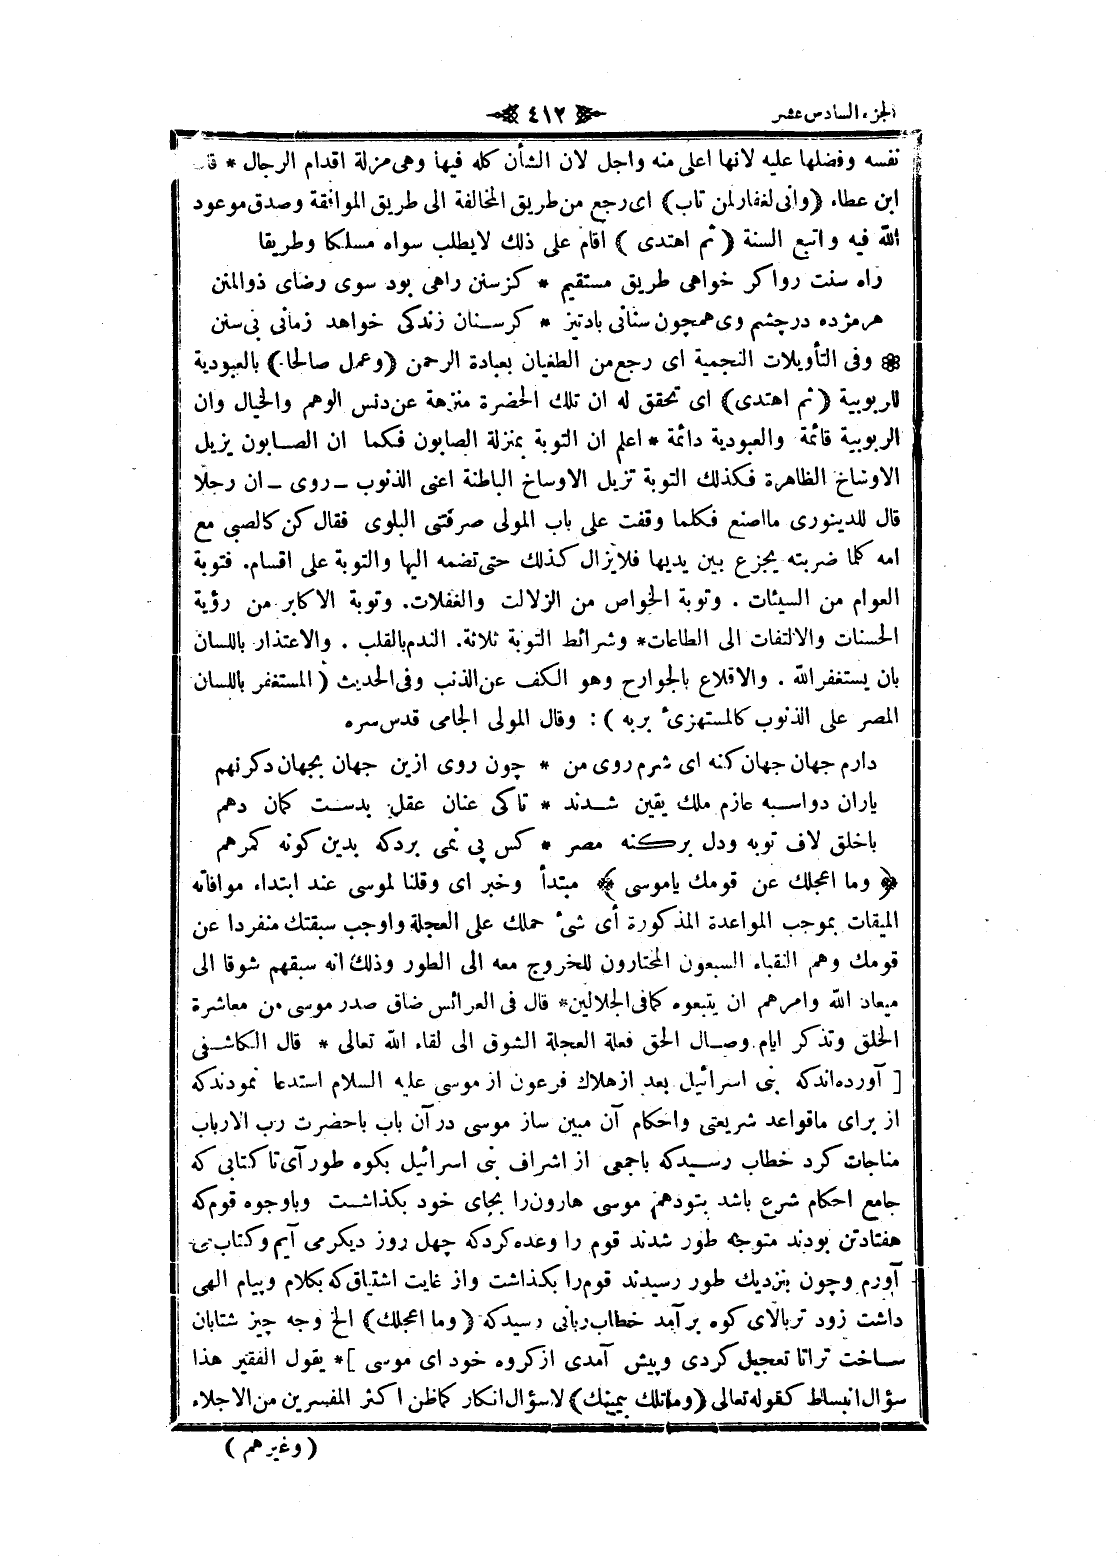 الجزء السادس عشر
٤١٢
نفسه وفضلها عليه لانها اعلى منه واجل لان الشأن كله فيها وهى مزلة اقدام الرجال * قال
ابن عطاء (وانى لغفار لمن تاب) اى رجع من طريق المخالفة الى طريق الموافقة وصدق موعود
الله فيه واتبع السنة (ثم اهتدى) اقام على ذلك لايطلب سواه مسلكا وطريقا
راه سنت رواكر خواهى طريق مستقيم * كز سنن راهى بود سوى رضاى ذوالمنن
هر مژه در چشم وى همچون سنانى بادتيز * كر سنان زندكى خواهد زمانى بى سنن
وفى التأويلات النجمية اى رجع من الطغيان بعبادة الرحمن (وعمل صالحا) بالعبودية
للربوبية (ثم اهتدى) اى تحقق له ان تلك الحضرة منزهة عن دنس الوهم والخيال وان
الربوبية قائمة والعبودية دائمة * اعلم ان التوبة بمنزلة الصابون فكما ان الصابون يزيل
الاوساخ الظاهرة فكذلك التوبة تزيل الاوساخ الباطنة اعنى الذنوب ـ روى ـ ان رجلا
قال للدينورى ما اصنع فكلما وقفت على باب المولى صرفتنى البلوى فقال كن كالصبى مع
امه كلما ضربته يجزع بين يديها فلايزال كذلك حتى تضمه اليها والتوبة على اقسام. فتوبة
العوام من السيئات . وتوبة الخواص من الزلات والغفلات. وتوبة الاكابر من رؤية
الحسنات والالتفات الى الطاعات* وشرائط التوبة ثلاثة. الندم بالقلب . والاعتذار باللسان
بان يستغفر الله . والاقلاع بالجوارح وهو الكف عن الذنب وفى الحديث (المستغفر باللسان
المصر على الذنوب كالمستهزئ بربه) : وقال المولى الجامى قدس سره
دارم جهان جهان كنه اى شرم روى من * چون روى ازين جهان بجهان دكر نهم
ياران دواسبه عازم ملك يقين شدند * تاكى عنان عقل بدست كمان دهم
باخلق لاف توبه ودل بركنه مصر * كس پى نمى بردكه بدين كونه كمرهم
﴿ وما اعجلك عن قومك ياموسى ﴾ مبتدأ وخبر اى وقلنا لموسى عند ابتداء موافاته
الميقات بموجب المواعدة المذكورة أى شئ حملك على العجلة واوجب سبقتك منفردا عن
قومك وهم النقباء السبعون المختارون للخروج معه الى الطور وذلك انه سبقهم شوقا الى
ميعاد الله وامرهم ان يتبعوه كما فى الجلالين* قال فى العرائس ضاق صدر موسى من معاشرة
الخلق وتذكر ايام وصال الحق فعلة العجلة الشوق الى لقاء الله تعالى * قال الكاشفى
[ آورده اندكه بنى اسرائيل بعد ازهلاك فرعون از موسى عليه السلام استدعا نمودندكه
از براى ماقواعد شريعتى واحكام آن مبين ساز موسى در آن باب باحضرت رب الارباب
مناجات كرد خطاب رسيدكه باجمعى از اشراف بنى اسرائيل بكوه طور آى تا كتابى كه
جامع احكام شرع باشد بتودهم موسى هارون را بجاى خود بكذاشت وباوجوه قوم كه
هفتادتن بودند متوجه طور شدند قوم را وعده كردكه چهل روز ديكر مى آيم وكتاب مى
آورم وچون بنزديك طور رسيدند قوم را بكذاشت واز غايت اشتياق كه بكلام وپيام الهى
داشت زود تربالاى كوه بر آمد خطاب ربانى رسيدكه (وما اعجلك) الخ وچه چيز شتابان
ساخت تراتا تعجيل كردى وپيش آمدى ازكروه خود اى موسى ]* يقول الفقير هذا
سؤال انبساط كقوله تعالى (وماتلك بيمينك) لاسؤال انكار كماظن اكثر المفسرين من الاجلاء
(وغيرهم)